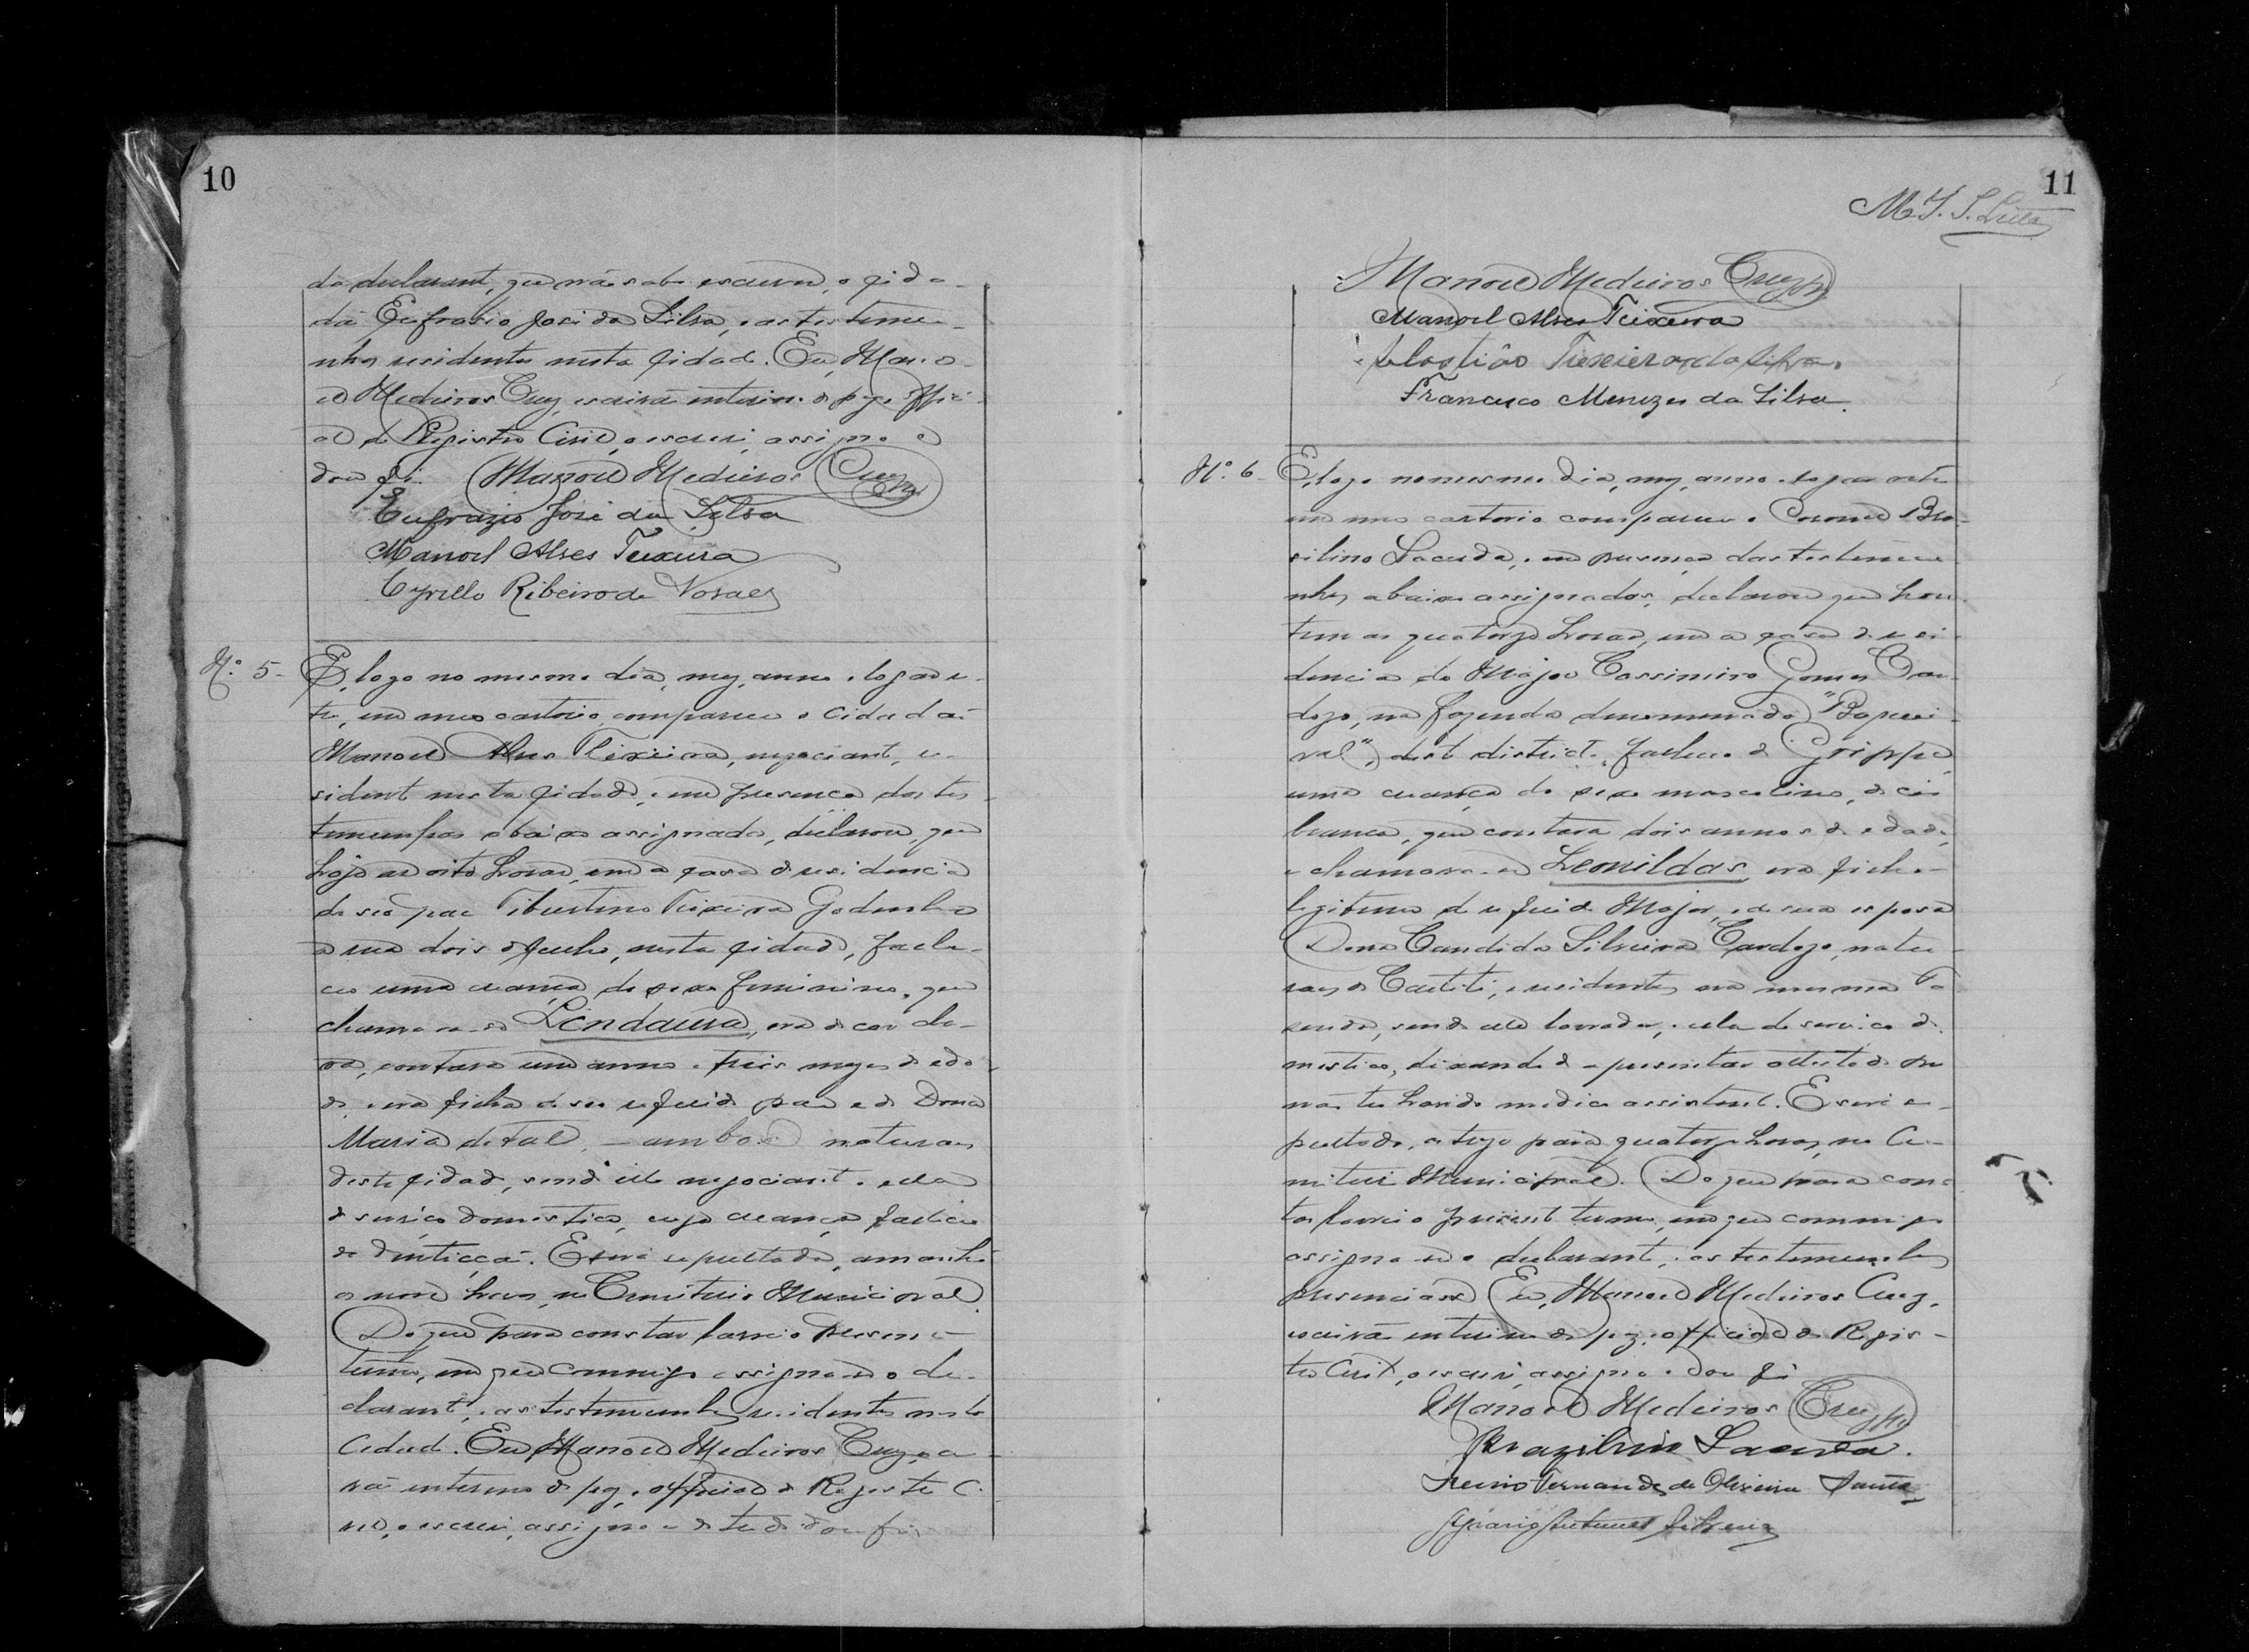 10
da declarant, que não sabe escrever, o cida-
dã Eufrasio José da Silva, e as testemu-
nhas residentes nesta cidade. Eu, Mano-
el Medeiros Cruz, escrivã interino de paz e offici-
al do Registro Civil, o escrevi, assigno e
dou fé. Manoel Medeiros Cruz
Eufrazio José da Silva
Manoel Alves Teixeira
Cyrillo Ribeiro de Novaes
Nº 5- E, logo no mesmo dia, mez, anno e logar re-
tro, em meo cartorio, compareceu o cidadã
Manoel Alves Teixeira, negociant, re-
sident nesta cidade, e em presença das tes-
temunhas abaixo assignadas, declarou, que
hoje as oito horas, em a casa de residencia
de seo pae Tiburtino Teixeira Godinho
a rua dois de Julho, nesta cidade, falle-
ceo uma creança do sexo feminino, que
chamava-se Lindaura, era de cor cla-
ra, contava um anno e treis mezes de eda-
de, era filha de seo referido pae e de Dona
Maria de tal, - ambos naturaes
desta cidade, sendo elle negociant e ella
de serviço domestico, cuja creança falleceu
de dentiçcã. Será sepultada, amanhã
as nove horas, no Cemiterio Municipal.
Do que para constar lavrei o present
termo, em que commigo assignarã o de-
clarant, e as testemunhas residentes nesta
Cidade. Eu Manoel Medeiros Cruz, escri-
vã interino de paz, e official do Registro Ci-
vil, o escrevi, assigno e de tudo dou fé.
11
M. T. S.
Manoel Medeiros Cruz
Manoel Alves Teixeira
Sebastião Teixeira da Silva.
Francisco Menezes da Silva.
Nº 6- E, logo no mesmo dia, mez, anno e logar retro
em meo cartorio compareceu o Coronel Bra-
silino Lacerda, e em presença das testemu-
nhas abaixo assignadas, declarou que hon-
tem as quatorze horas, em a casa de resi-
dencia do Major Cassimiro Gomes Car-
dozo, na fazenda denominada
dest district, falleceo de Grippe,
uma creança do sexo masculino, de côr
branca, que contava dois annos de edade,
e chamava-se Leonildas, era filho
legitimo do referido Major, e de sua esposa
Dona Candida Silveira Cardozo, natu-
raes de Caetité, e residentes na mesma Fa-
zenda, sendo elle lavrador, e ella de serviço do-
mestico, deixando de apresentar attestado por
não ter havido medico assistent. E será se-
pultado, hoje para quatorze horas, no Ce-
miterio Municipal. Do que para cons-
tar lavrei o present termo, em que commigo
assignarã o declarant, e as testemunhas
presenciaes. Eu, Manoel Medeiros Cruz,
escrivã interino de paz, e official do Regis-
tro Civil, o escrevi, assigno e dou fé
Manoel Medeiros Cruz
Brazilino Lacerda.
Fernandes de Oliveira
Antunes Silveira